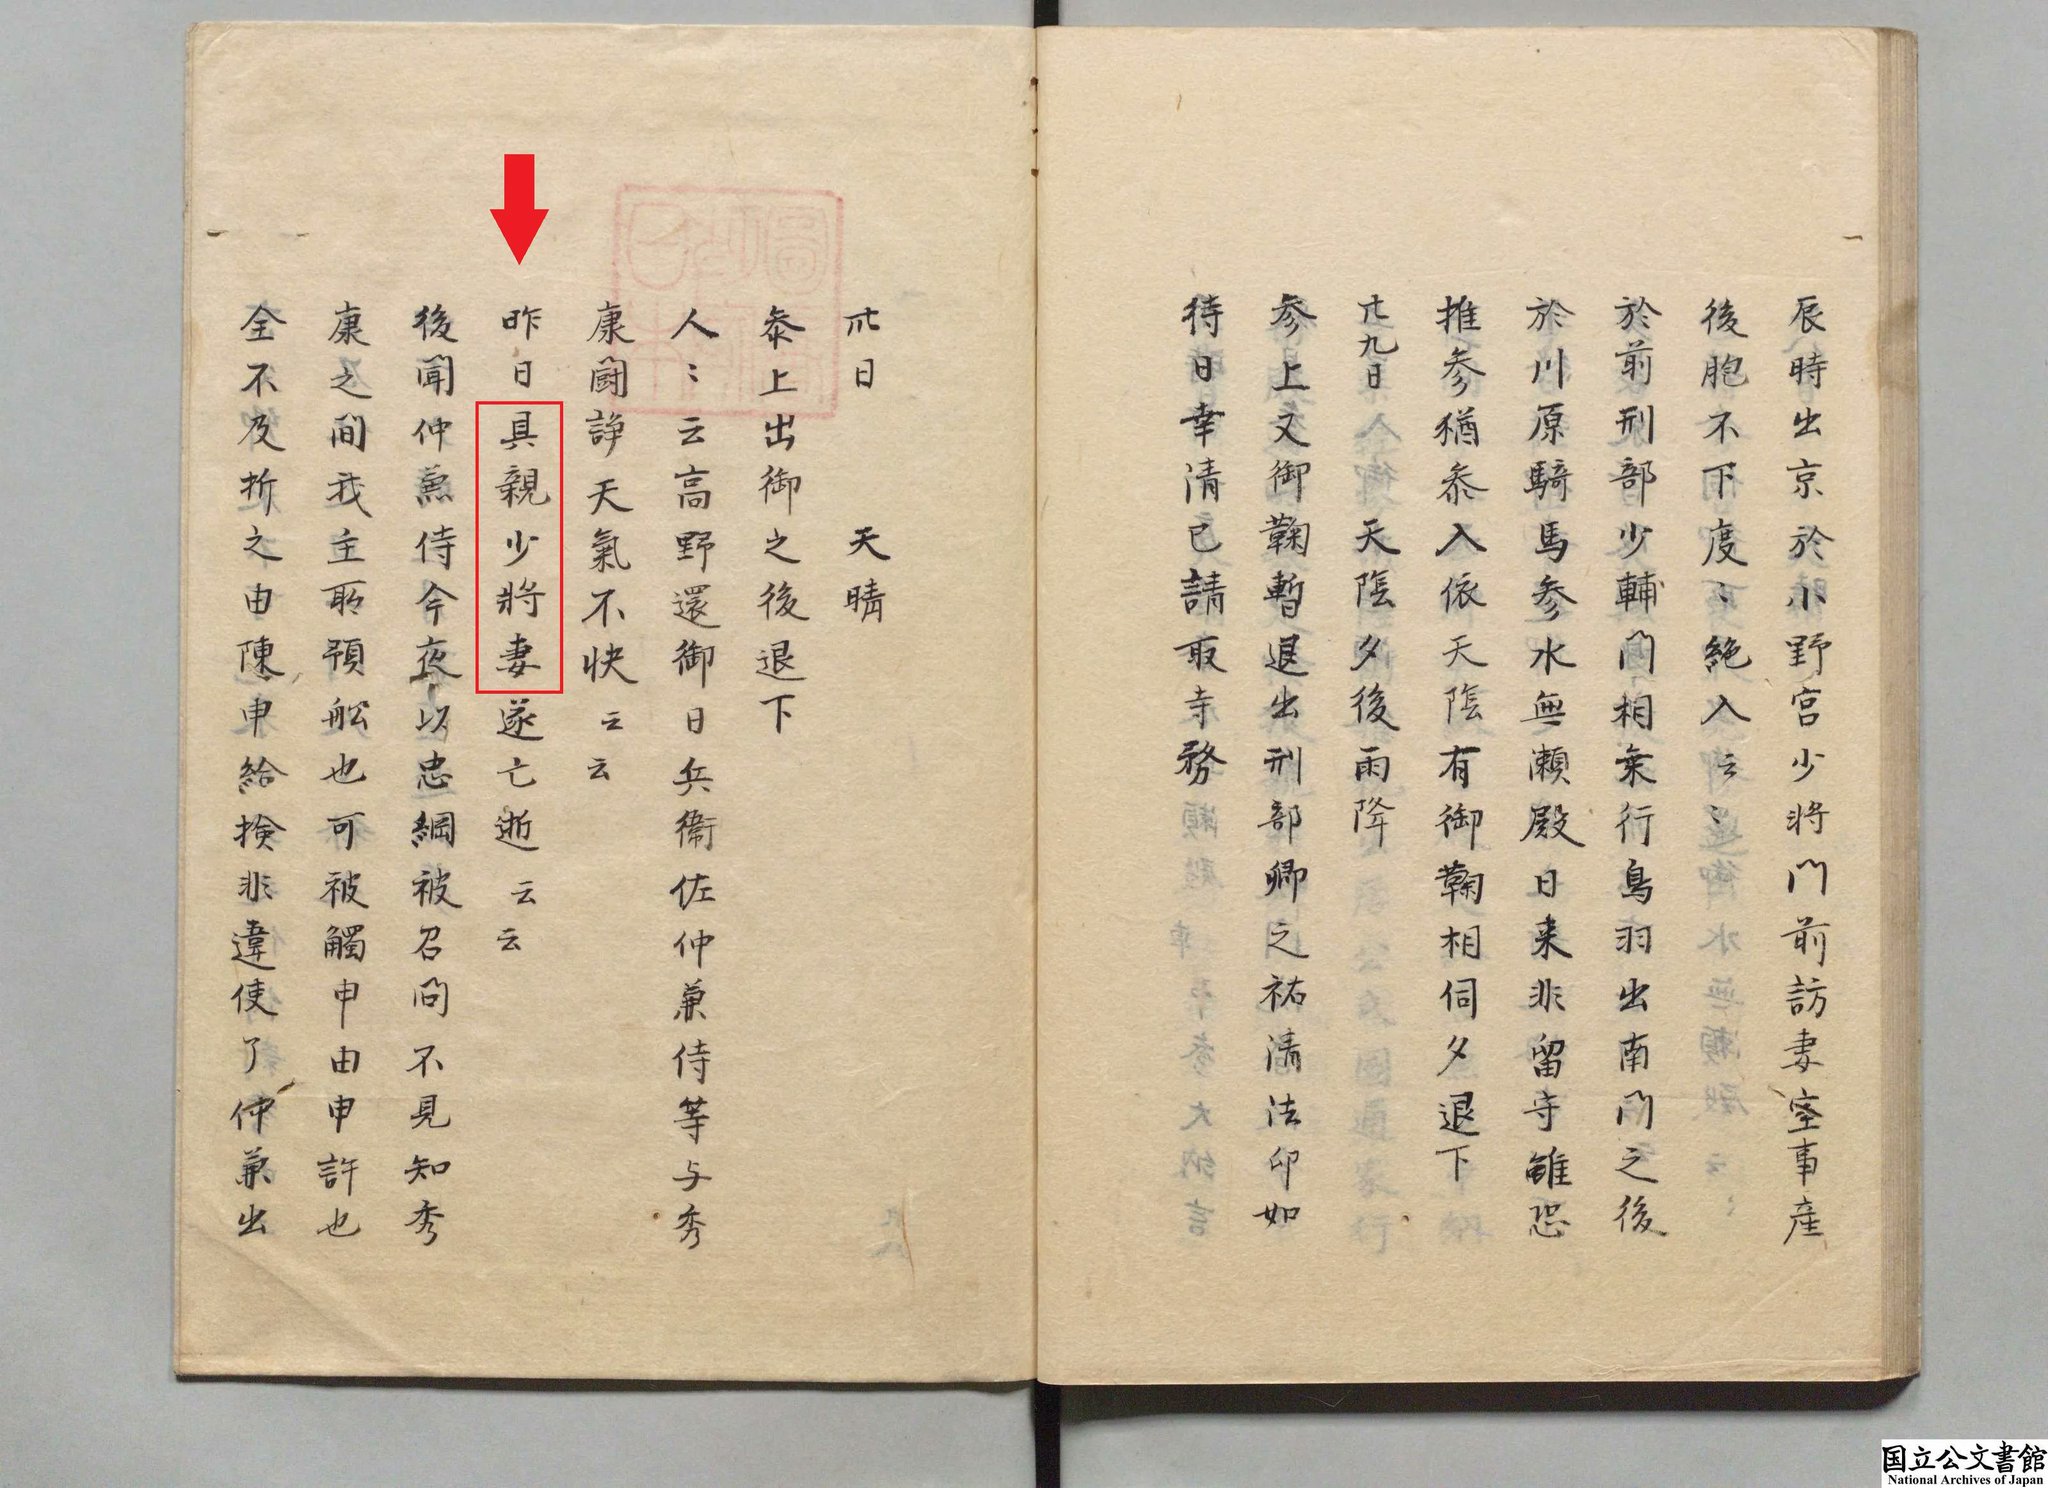 辰時出京於小野宮少将門前訪妻室事産
後胞不下度〻絶入云〻
於前刑部少輔門相乗行鳥羽出南門之後
於川原騎馬参水無瀬殿日来非留守雖恐
推参猶参入依天陰有御鞠相伺夕退下
廿九日　天陰夕後雨降
参上又御鞠暫退出刑部卿之祐清法印如
待日幸清已請取寺務
卅日　天晴
参上出御之後退下
人〻云高野還御日兵衛佐仲兼侍等与秀
康闘諍天氣不快云云
昨日具親少将妻遂亡逝云云
後聞仲兼侍今夜以忠綱被召問不見知秀
康之間我主取預舩也可被觸申由申許也
全不及折之由陳申給検非違使了仲兼出
国立公文書館
National Archives of Japan